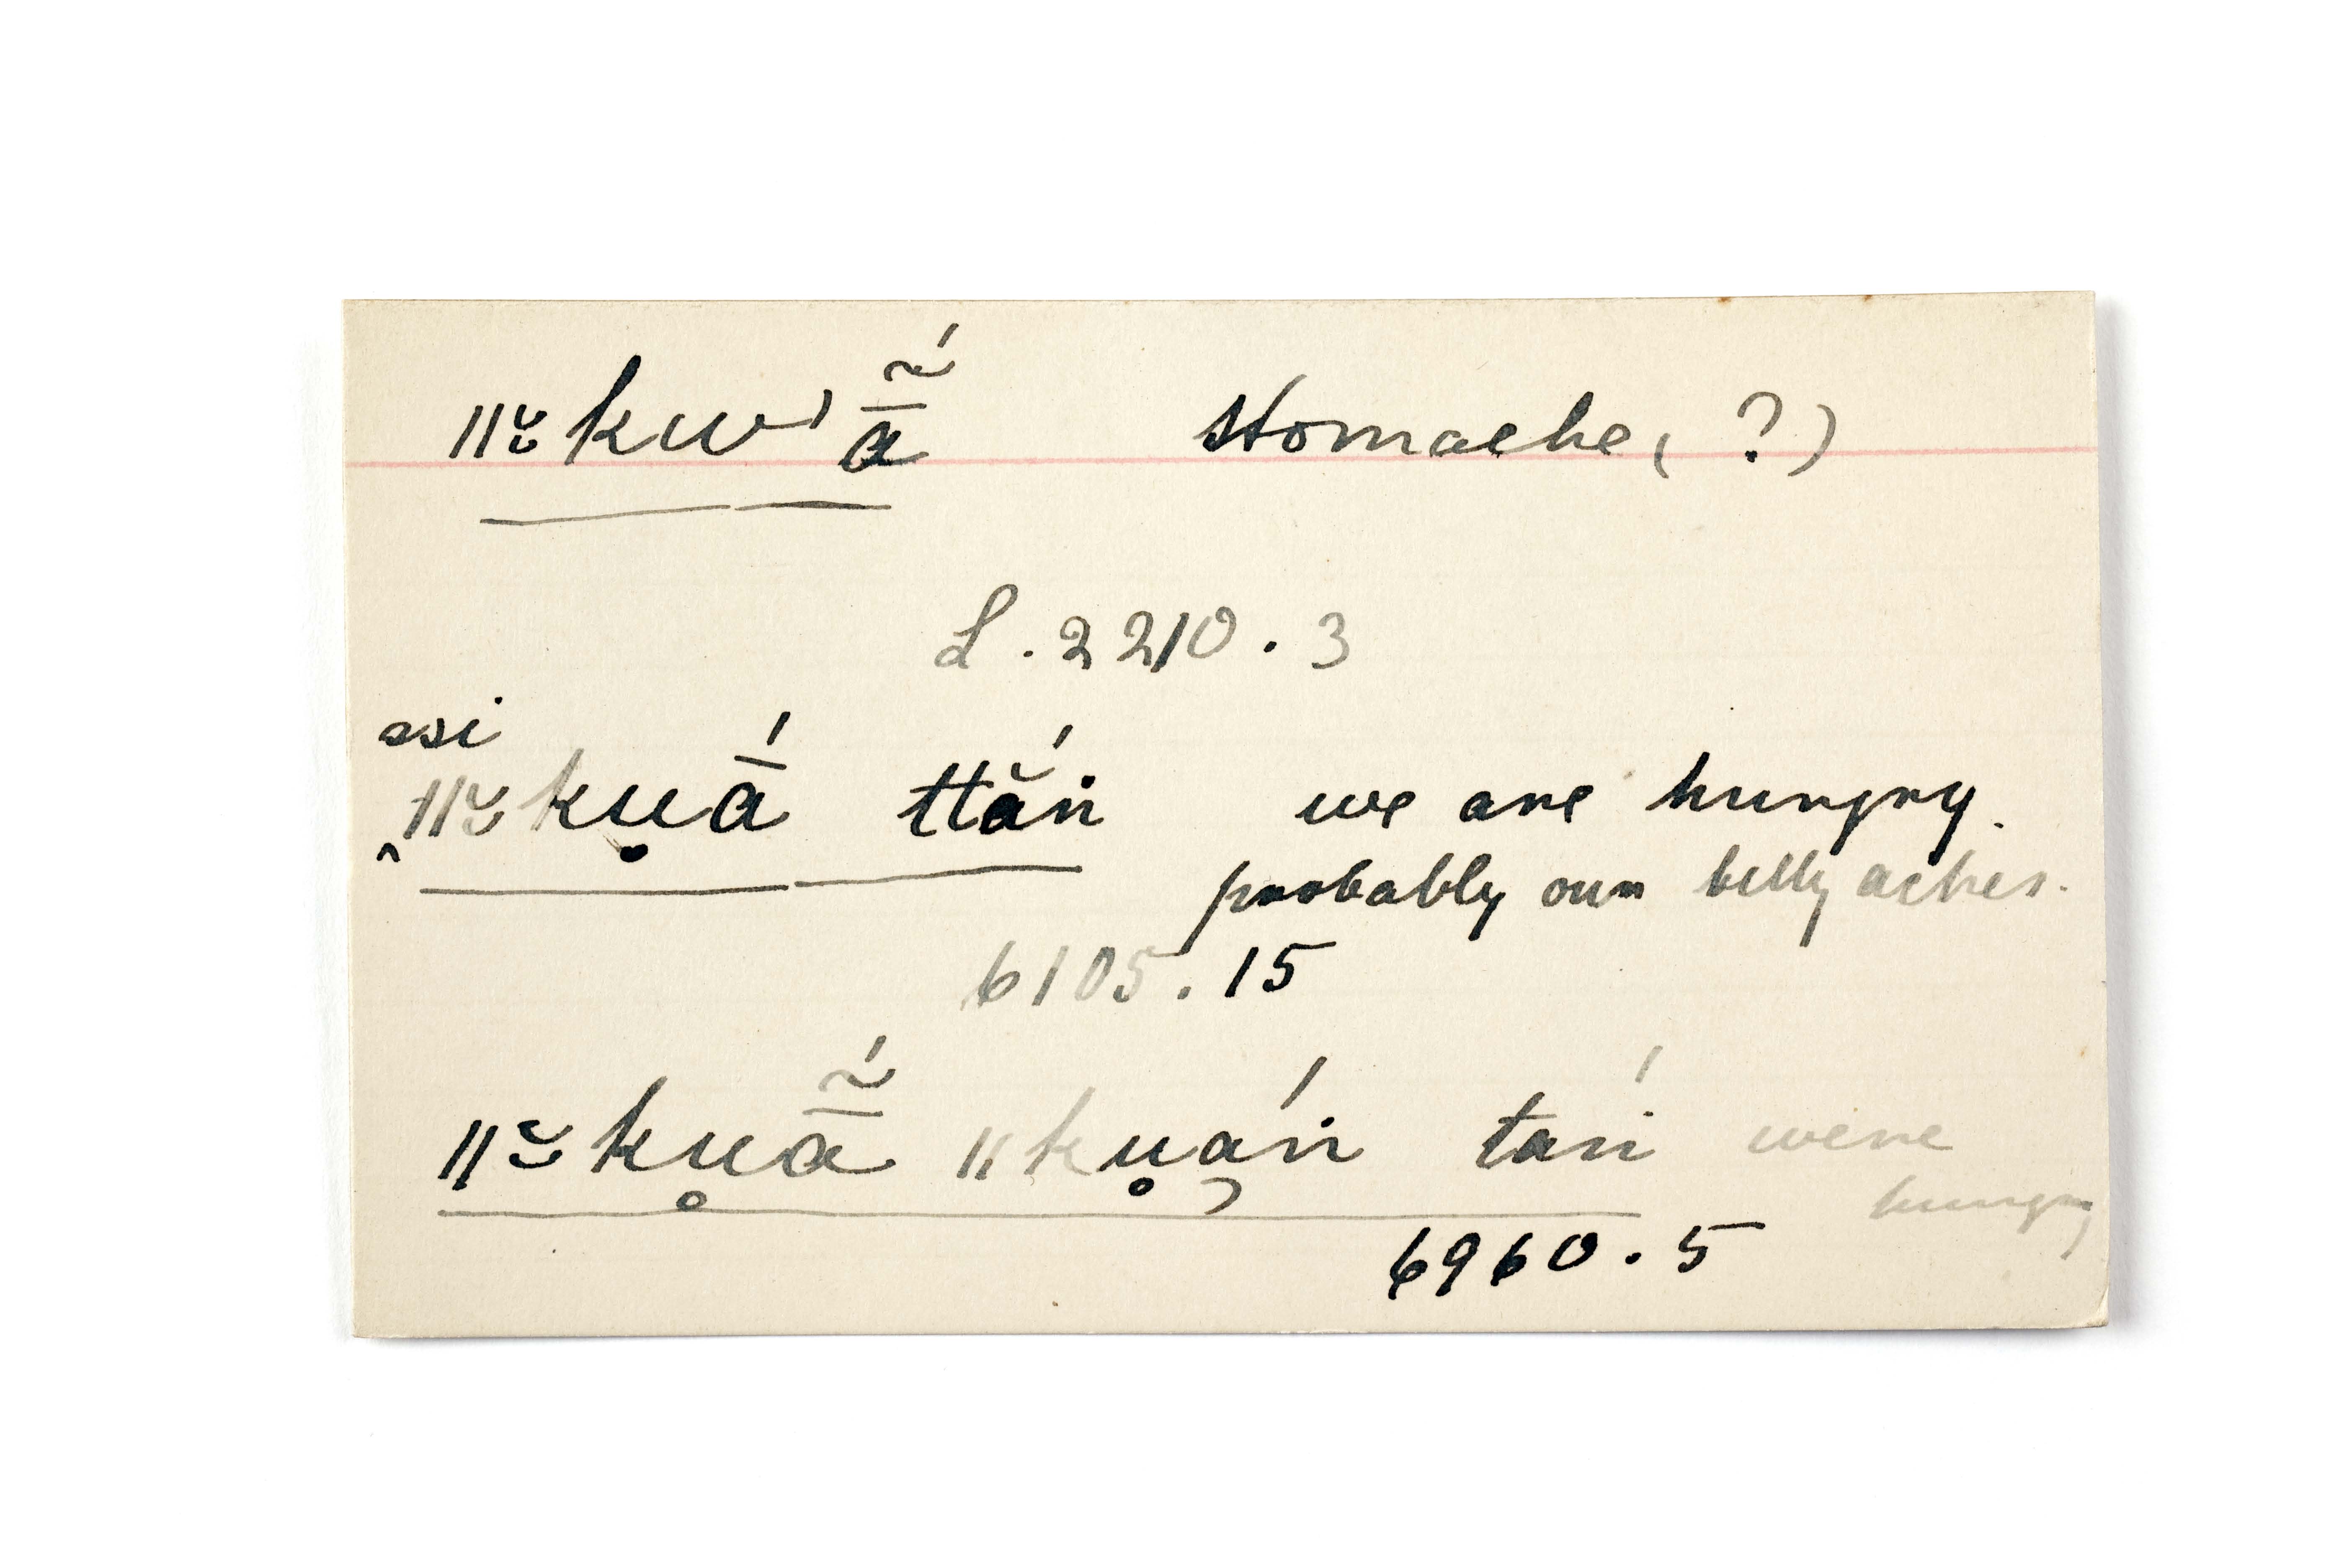 ǁ̆kwˀã̄́ stomache (?)
L. 2210. 3
ssi
‸ǁ̆kṷā́ ttắn we are hungry.
probably our belly aches.
6105. 15
ǁ̆kṷã̄́ ǁkṷá̜n tań were
hungry
6960. 5